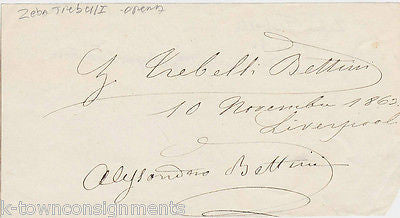 Zeba Trebelli opera
Z Trebelli Bettini
10 Novembre 1862
Liverpool
Alessandro Bettini
k-townconsignments.com